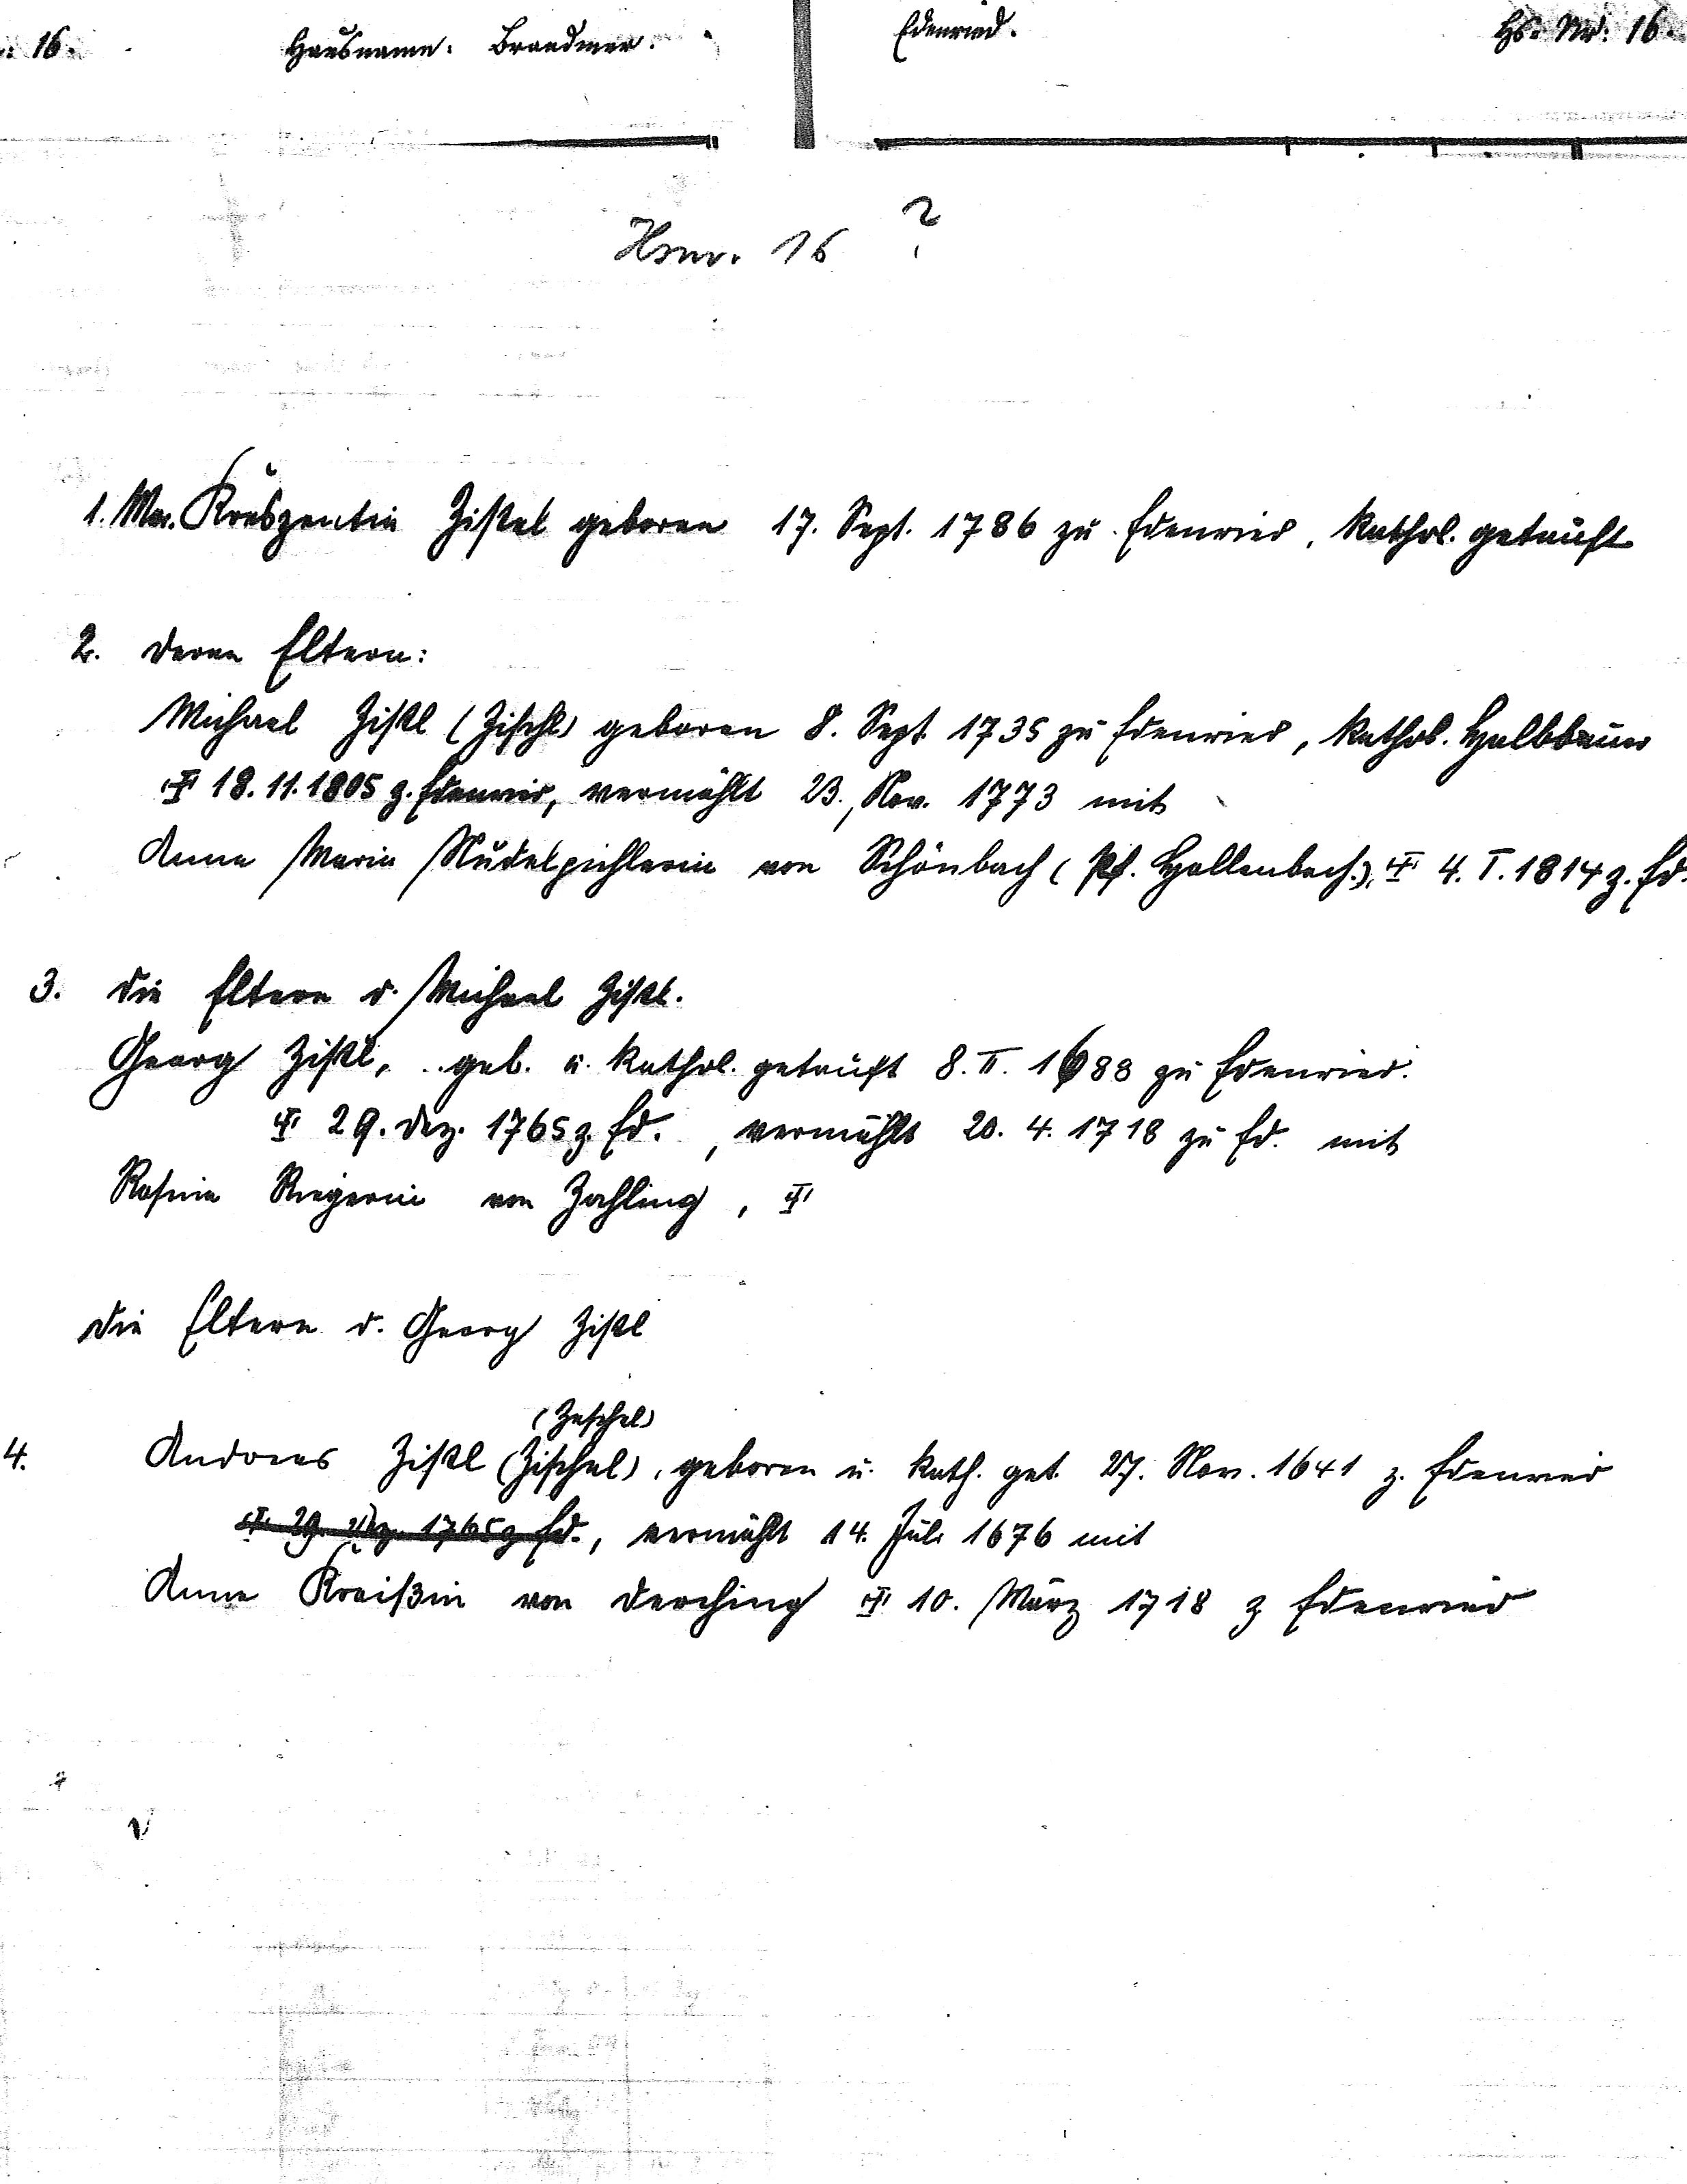 : 16. Hausname: Brandmer. Edenried. Hs. Nr: 16.
Hsnr. 16 ?
1. Ma. Kreszentia Zistel geboren 17. Sept. 1786 zu Edenried, kathol. getauft
2. deren Eltern:
Michael Zistl (Zischl) geboren 8. Sept. 1735 zu Edenried, kathol. Halbbauer
✝ 18.11.1805 z. Edenried, vermählt 23. Nov. 1773 mit
Anna Maria Nudelpichlerin von Schönbach (Pf. Hollenbach), ✝ 4. I. 1814 z. Ed.
3. die Eltern d. Michael Zistl.
Georg Zistl, geb. u. kathol. getauft 8. II. 1688 zu Edenried.
✝ 29. Dez. 1765 z. Ed., vermählt 20. 4. 1718 zu Ed. mit
Rosina Riegerin von Zahling, ✝
die Eltern d. Georg Zistl
(Zeschel)
4. Andreas Zistl (Zischel), geboren u. kath. get. 27. Nov. 1641 z. Edenried
✝ 29. Dez. 1765 z Ed., vermählt 14. Juli 1676 mit
Anna Kreißin von Derching ✝ 10. März 1718 z Edenried